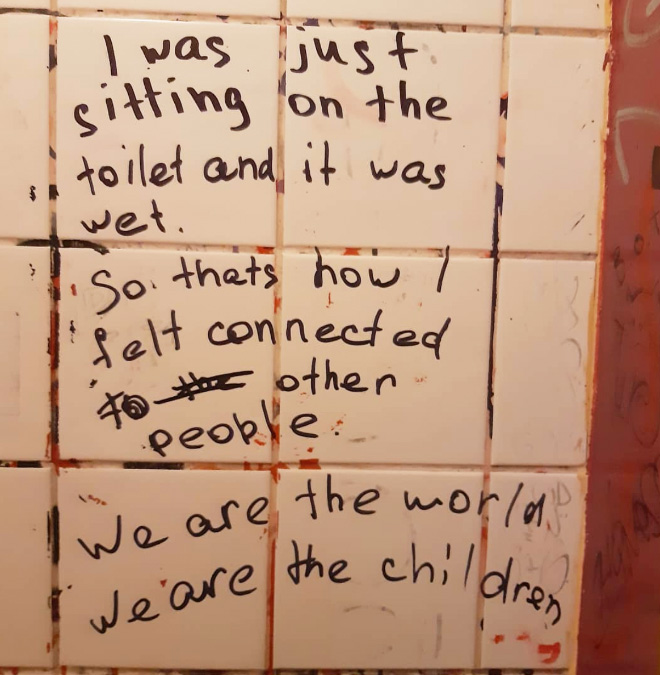 I was just
sitting on the
toilet and it was
wet.
So thats how I
felt connected
to other
people.
We are the world
we are the children